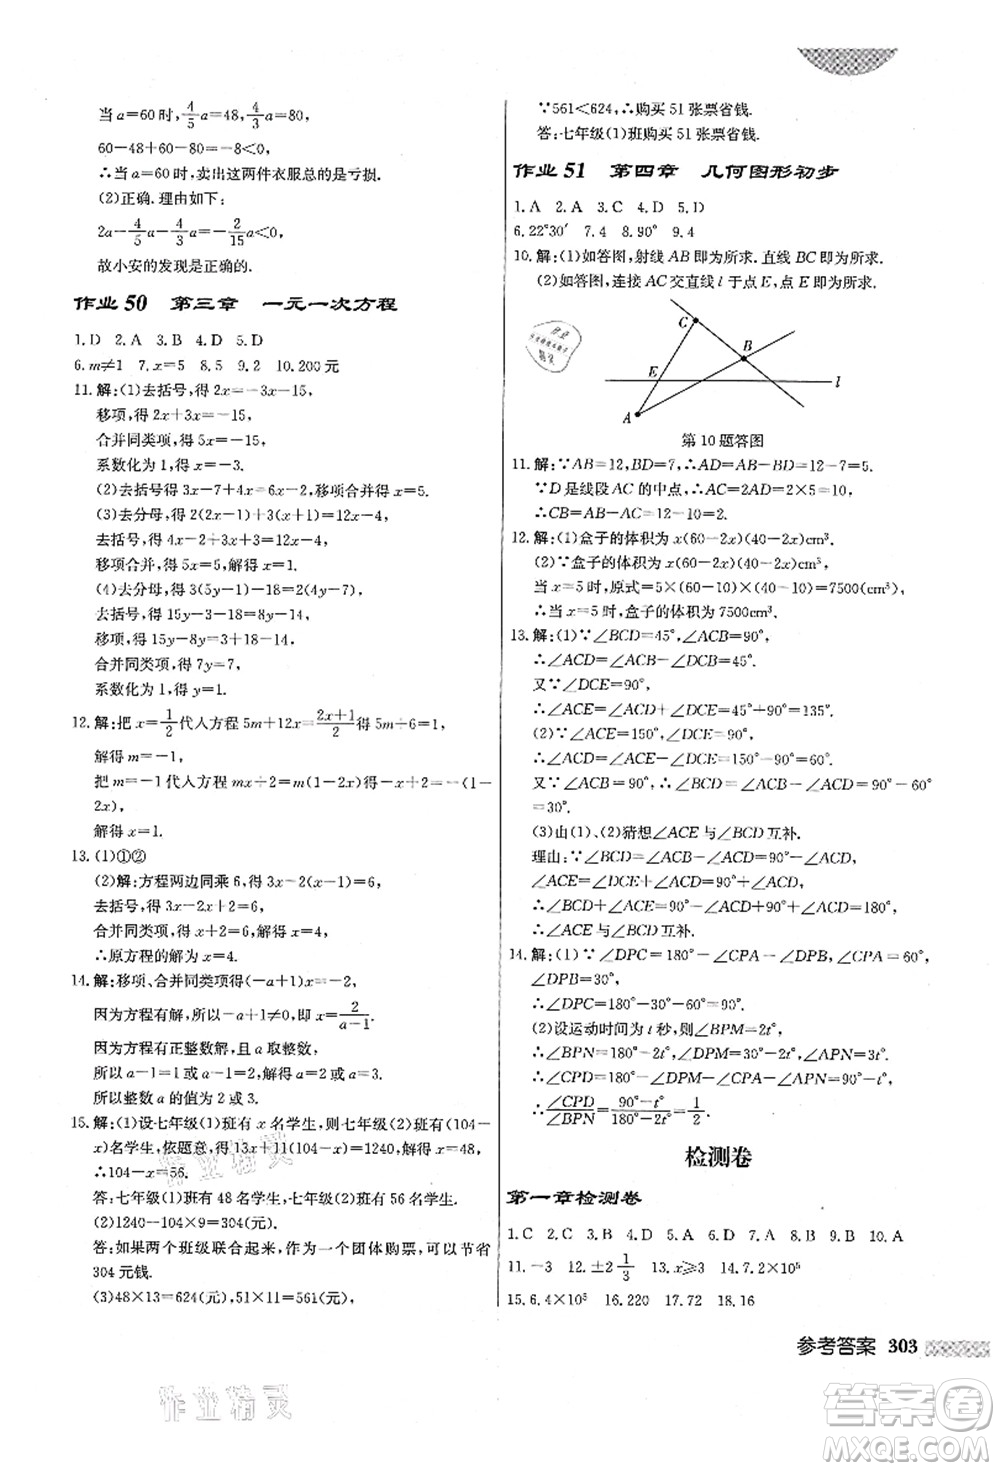 当 a=60 时,4/5 a=48,4/3 a=80.
60-48+60-80=-8<0
∴当 a=60 时,卖出这两件衣服总的是亏损.
(2)正确.理由如下:
2a-4/5 a-4/3 a=-2/15 a<0.
故小安的发现是正确的.
作业 50 第三章 一元一次方程
1.D 2.A 3.B 4.D 5.D
6.m≠1 7.x=5 8.5 9.2 10.200 元
11.解:(1)去括号,得 2x=-3x-15,
移项,得 2x+3x=-15,
合并同类项,得 5x=-15,
系数化为 1,得 x=-3.
(2)去括号,得 3x-7x+4x=6x-30,移项合并,得 x=5.
(3)去分母,得 2(2x-1)=3(x+2)-12,
去括号,得 4x-2=3x+6-12x-4,
移项合并,得 5x=5,解得 x=1.
(4)去分母,得 3(5y-1)-18=2(4y-7),
去括号,得 15y-3-18=8y-14,
移项,得 15y-8y=3+18-14,
合并同类项,得 7y=7,
系数化为 1,得 y=1.
12.解:把 x=1/2 代入方程 5m+12x=(2x+1)/2 得 5m+6=1,
解得 m=-1,
把 m=-1 代入方程 mx+2=m(1-2x)得-x+2=-(1-
2x),
解得 x=1.
13.(1)①②
(2)解:方程两边同乘 6,得 3x-2(x-1)=6,
去括号,得 3x-2x+2=6,
合并同类项,得 x+2=6,
∴原方程的解为 x=4.
14.解:移项、合并同类项得(-a+1)x=-2,
因为方程有解,所以-a+1≠0,即 x=2/(a-1).
因为方程有正整数解,且 a 取整数,
所以 a-1=1 或 a-1=2,解得 a=2 或 a=3.
所以整数 a 的值为 2 或 3.
15.解:(1)设七年级(1)班有 x 名学生,则七年级(2)班有(104-
x)名学生,依题意,得 13x+11(104-x)=1240,解得 x=48,
∴104-x=56.
答:七年级(1)班有 48 名学生,七年级(2)班有 56 名学生.
(2)1240-104×9=304(元).
答:如果两个班级联合起来,作为一个团体购票,可以节省
304 元钱.
(3)48×13=624(元),51×11=561(元),
∵561<624,∴购买 51 张票省钱.
答:七年级(1)班购买 51 张票省钱.
作业 51 第四章 几何图形初步
1.A 2.A 3.C 4.D 5.D
6.22°30′ 7.4 8.90° 9.4
10.解:(1)如答图,射线 AB 即为所求.直线 BC 即为所求.
(2)如答图,连接 AC 交直线 l 于点 E,点 E 即为所求.
C
B
E
l
A
第 10 题答图
11.解:∵AB=12,BD=7,∴AD=AB-BD=12-7=5.
∵D 是线段 AC 的中点,∴AC=2AD=2×5=10.
∴CB=AB-AC=12-10=2.
12.解:(1)盒子的体积为 x(60-2x)(40-2x)cm³.
(2)∵盒子的体积为 x(60-2x)(40-2x)cm³,
当 x=5 时,原式=5×(60-10)×(40-10)=7500(cm³)
∴当 x=5 时,盒子的体积为 7500cm³.
13.解:(1)∵∠BCD=45°,∠ACB=90°,
∴∠ACD=∠ACB-∠DCB=45°.
又∵∠DCE=90°,
∴∠ACE=∠ACD+∠DCE=45°+90°=135°.
(2)∵∠ACE=150°,∠DCE=90°,
∴∠ACD=∠ACE-∠DCE=150°-90°=60°.
又∵∠ACB=90°,∴∠BCD=∠ACB-∠ACD=90°-60°
=30°.
(3)由(1)、(2)猜想∠ACE与∠BCD互补.
理由:∵∠BCD=∠ACB-∠ACD=90°-∠ACD,
∠ACE=∠DCE+∠ACD=90°+∠ACD,
∴∠BCD+∠ACE=90°-∠ACD+90°+∠ACD=180°,
∴∠ACE 与∠BCD互补.
14.解:(1)∵∠DPC=180°-∠CPA-∠DPB,∠CPA=60°,
∠DPB=30°,
∴∠DPC=180°-30°-60°=90°.
(2)设运动时间为 t 秒,则∠BPM=2t°,
∴∠BPN=180°-2t°,∠DPM=30°-2t°,∠APN=3t°.
∴∠CPD=180°-∠DPM-∠CPA-∠APN=90°-t°,
∴∠CPD/∠BPN=(90°-t°)/(180°-2t°)=1/2.
检测卷
第一章检测卷
1.C 2.D 3.C 4.D 5.A 6.D 7.D 8.B 9.D 10.A
11.-3 12.±2 1/3 13.x≥3 14.7.2×10⁵
15.6.4×10⁵ 16.220 17.72 18.16
参考答案 303
作业精灵
答案卷
MXQE.COM